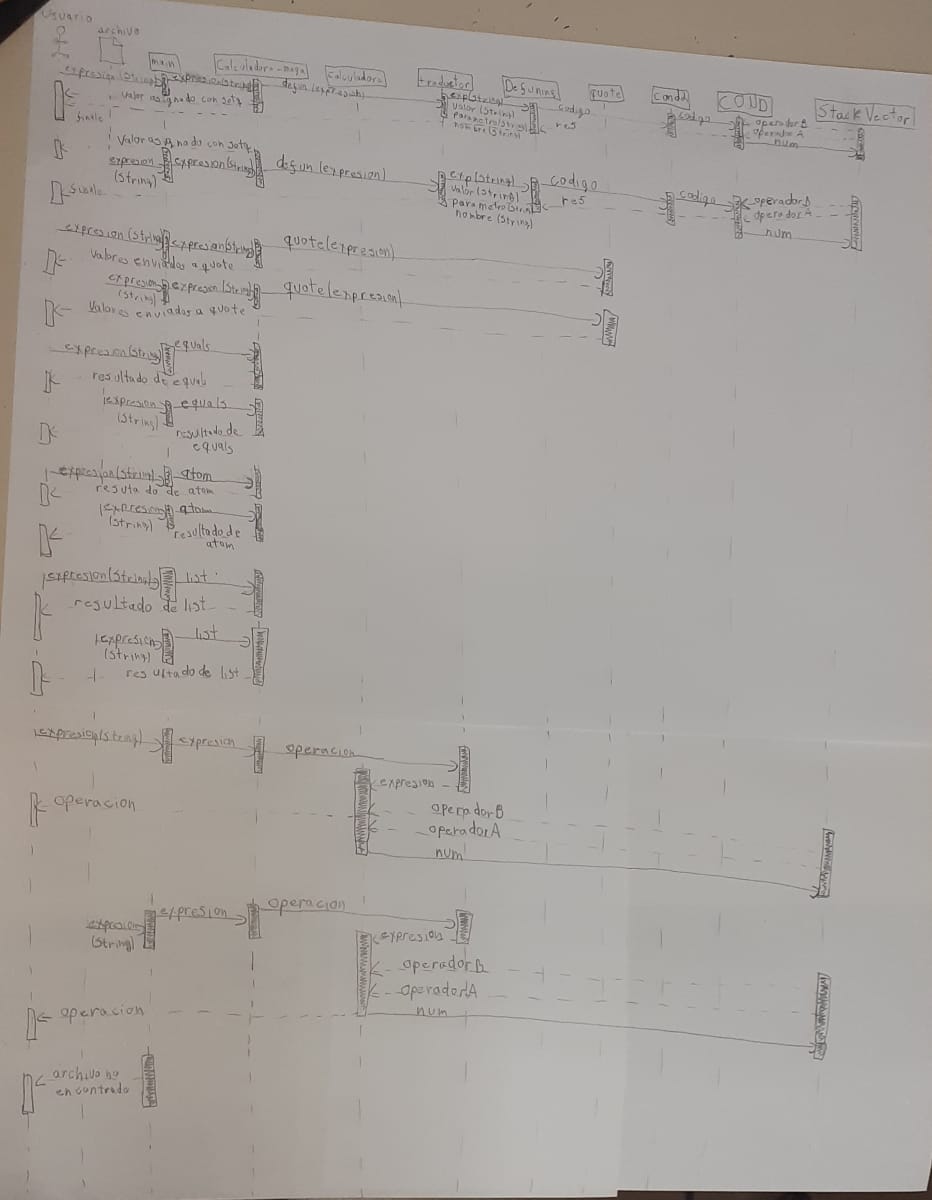 Usuario
archivo
main
Calculadora-maga
calculadora
traductor
Defuning
quote
Condd
COND
StackVector
expresion(String)
expresion(String)
defun (expresion)
valor asignado con setq
exp(String)
valor (String)
parametro(String)
nombre (String)
codigo
res
codigo
operadorB
operadorA
num
Valor asignado con setq
expresion
(String)
expresion(String)
defun (expresion)
exp(String)
valor (String)
parametro(String)
nombre (String)
codigo
res
codigo
operadorB
operadorA
num
expresion(String)
expresion(String)
quote(expresion)
valores enviados a quote
expresion
(String)
expresion(String)
quote(expresion)
Valores enviados a quote
expresion(String)
equals
resultado de equals
expresion
(String)
equals
resultado de
equals
expresion(String)
atom
resutado de atom
expresion
(String)
atom
resultado de
atom
expresion(String)
list
resultado de list
expresion
(String)
list
resultado de list
expresion(String)
expresion
operacion
expresion
operacion
operadorB
operadorA
num
expresion
(String)
expresion
operacion
expresion
operadorB
operadorA
operacion
num
archivo no
encontrado